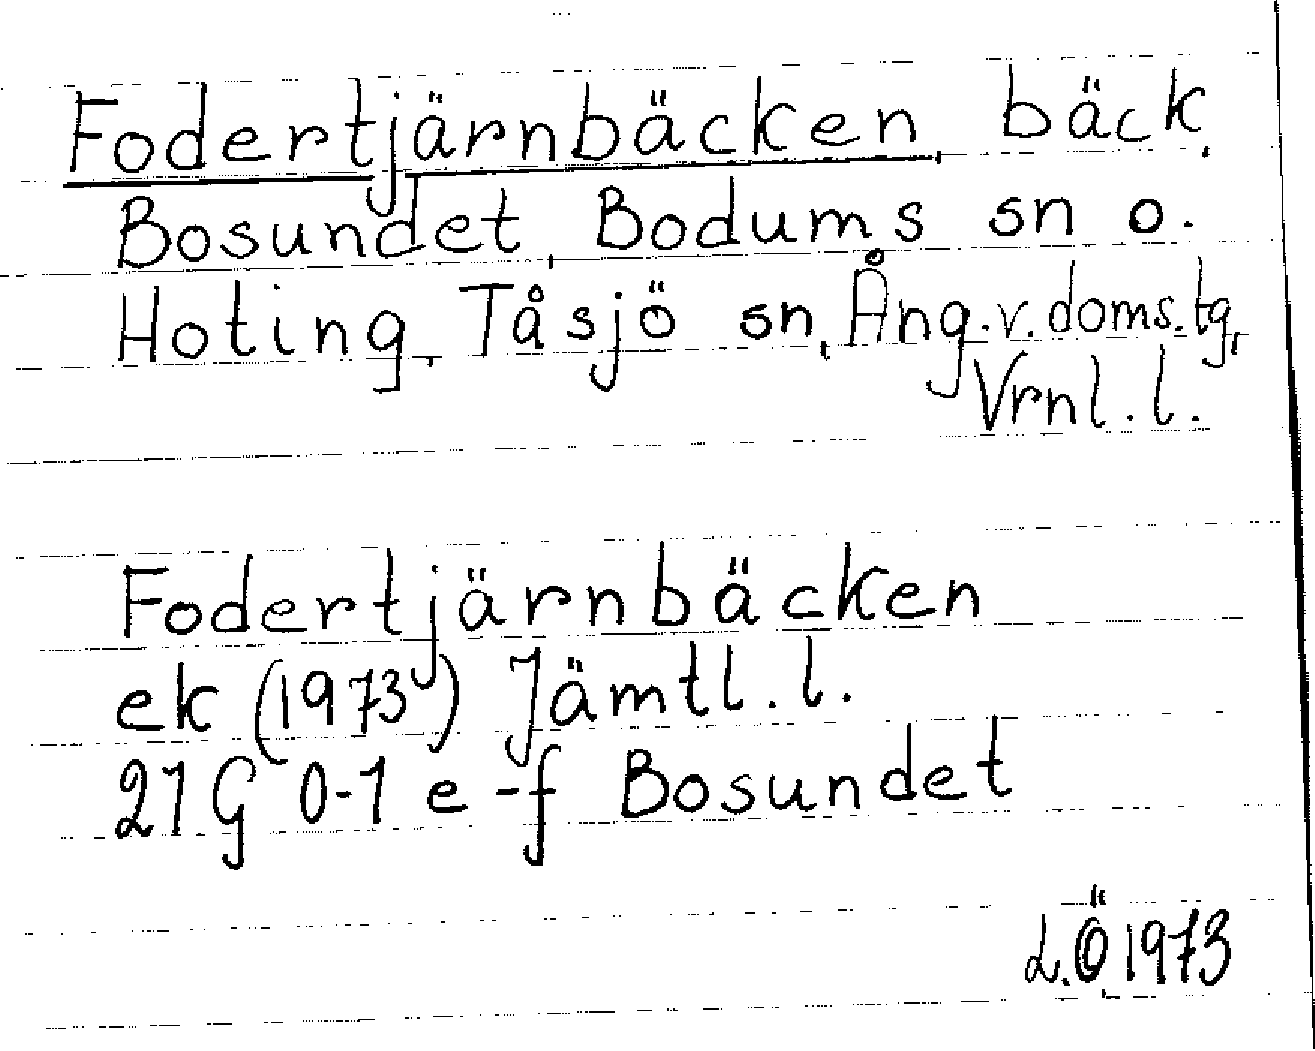 Fodertjärnbäcken, bäck,
Bosundet, Bodums sn o.
Hoting, Tåsjö sn, Ång.v.doms.tg,
Vrnl.l.
Fodertjärnbäcken
ek (1973) Jämtl.l.
21G 0-1 e-f Bosundet
L.Ö 1973